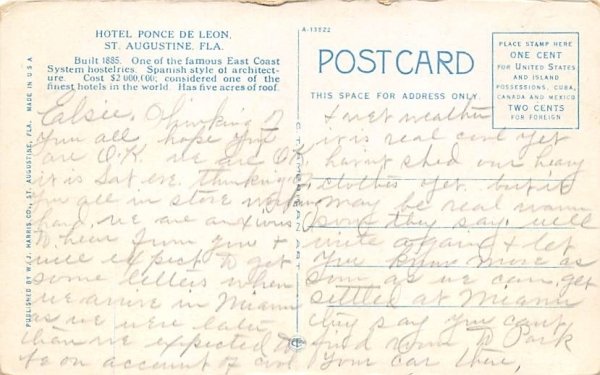 HOTEL PONCE DE LEON,
ST. AUGUSTINE, FLA.
Built 1885. One of the famous East Coast
System hostelries. Spanish style of architect-
ure. Cost $2 000,000; considered one of the
finest hotels in the world. Has five acres of roof.
Elsie, Thinking of
you all hope you
are O.K. we are O.K.
it is Sat. eve. thinking
you all in store working
hard, we are anxious
to hear from you &
will expect to get
some letters when
we arrive in Miami
as we were later
than we expected to
be on account of cool
A-13822
POST CARD
THIS SPACE FOR ADDRESS ONLY.
PLACE STAMP HERE
ONE CENT
FOR UNITED STATES
AND ISLAND
POSSESSIONS, CUBA,
CANADA AND MEXICO
TWO CENTS
FOR FOREIGN
& wet weather
it is real cool yet
havn't shed our heavy
clothes yet, but it
may be real warm
soon they say. will
write again & let
you know more as
soon as we can get
settled at Miami
they say you cant
find room to Park
your car there,
PUBLISHED BY W.J. HARRIS CO., ST. AUGUSTINE, FLA. MADE IN U S A